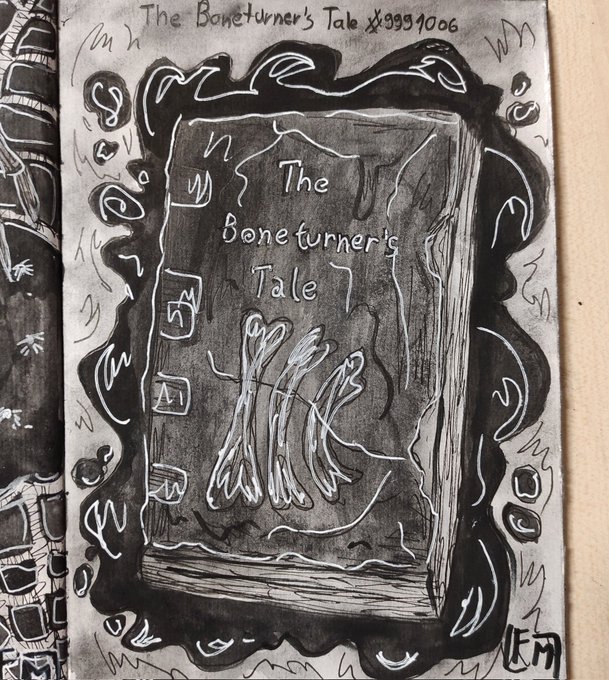 The Boneturner's Tale #9991006
The
Boneturner's
Tale
FM